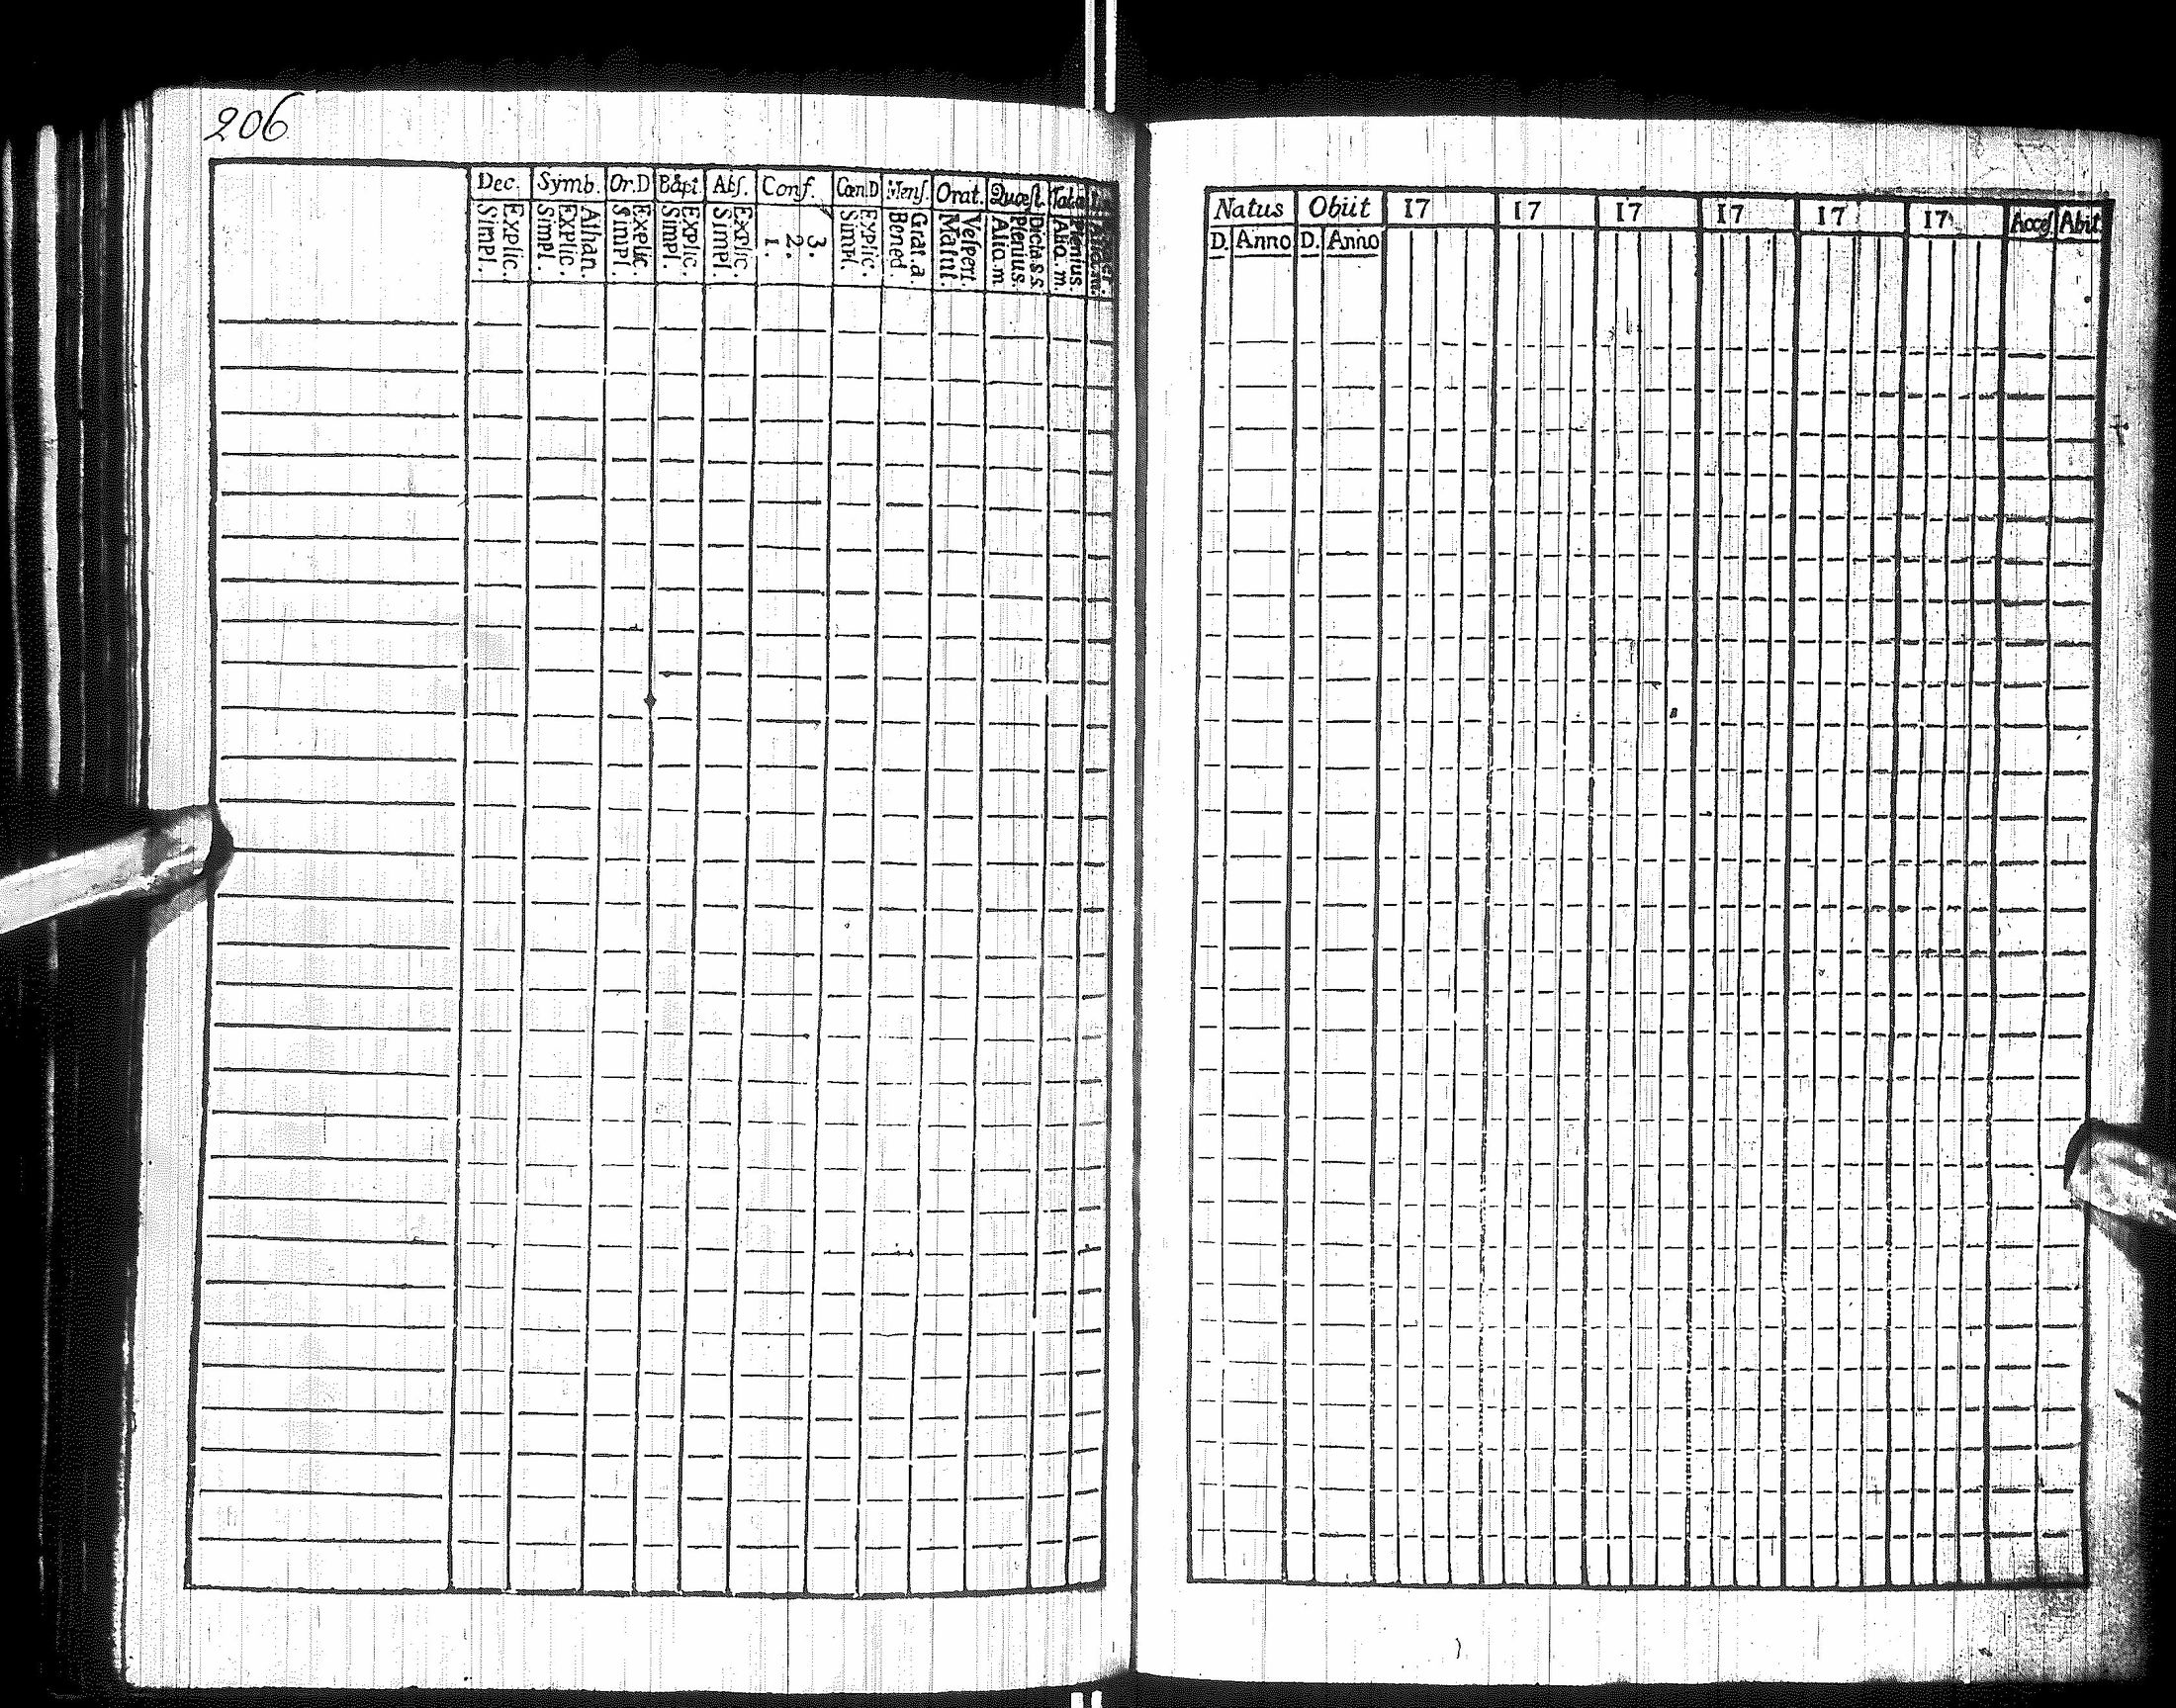 206
Dec. Symb. Or.D Bapt. Abſ. Conf. Cœn.D Menſ. Orat. Quæſt.
Simpl. Explic. Simpl. Explic. Athan. Simpl. Explic. Simpl. Explic. Simpl. Explic. 1. 2. 3. Simpl. Explic. Bened. Grat.a. Matut. Veſpert. Aliq.m. Plenius. Dicta.s.s. Aliq.m. Plenius.
Natus Obiit 17 17 17 17 17 17 Acceſ. Abit.
D. Anno D. Anno